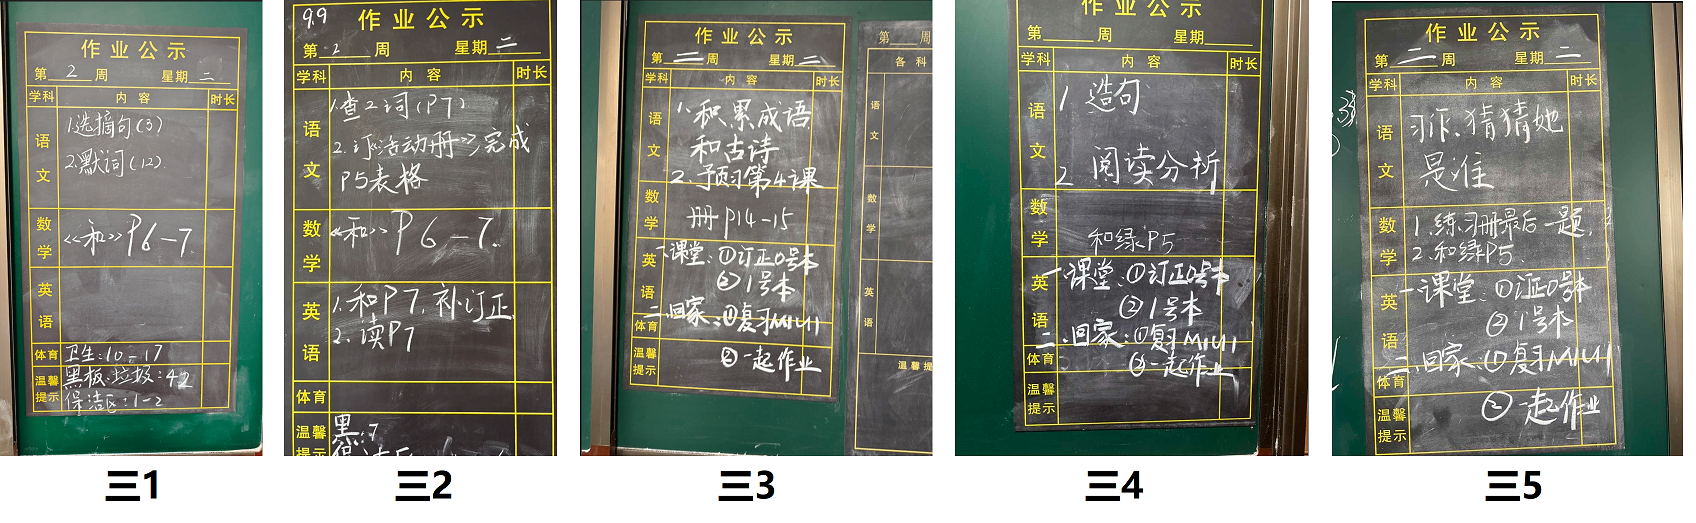 作业公示
第 2 周 星期 二
学科 内容 时长
语文
1.选摘句(3)
2.默词(12)
数学
《和》P6-7
英语
体育
卫生:10-17
温馨提示
黑板.垃圾:42
保洁区:1-2
三1
9.9
作业公示
第 2 周 星期 二
学科 内容 时长
语文
1.查2词(P7)
2.订活动册=>完成
P5表格
数学
《和》P6-7.
英语
1.和P7.补订正
2.读P7
体育
温馨提示
黑:7
三2
作业公示
第 二 周 星期 二
学科 内容 时长
语文
1.积累成语
和古诗
2.预习第4课
数学
册P14-15
英语
一.课堂:①订正0号本
②1号本
二.回家:①复习M1U1
体育
温馨提示
②一起作业
第 周
各科
语文
数学
英语
温馨提
三3
作业公示
第 周 星期
学科 内容 时长
语文
1 造句
2 阅读分析
数学
和绿P5
英语
一.课堂:①订正0号本
②1号本
二.回家:①复习M1U1
体育
②一起作业
温馨提示
三4
作业公示
第 二 周 星期 二
学科 内容 时长
语文
习作:猜猜她
是谁
数学
1.练习册最后一题.
2.和绿P5.
英语
一课堂:①订正0号本
②1号本
二.回家:①复习M1U1
体育
温馨提示
②一起作业
三5